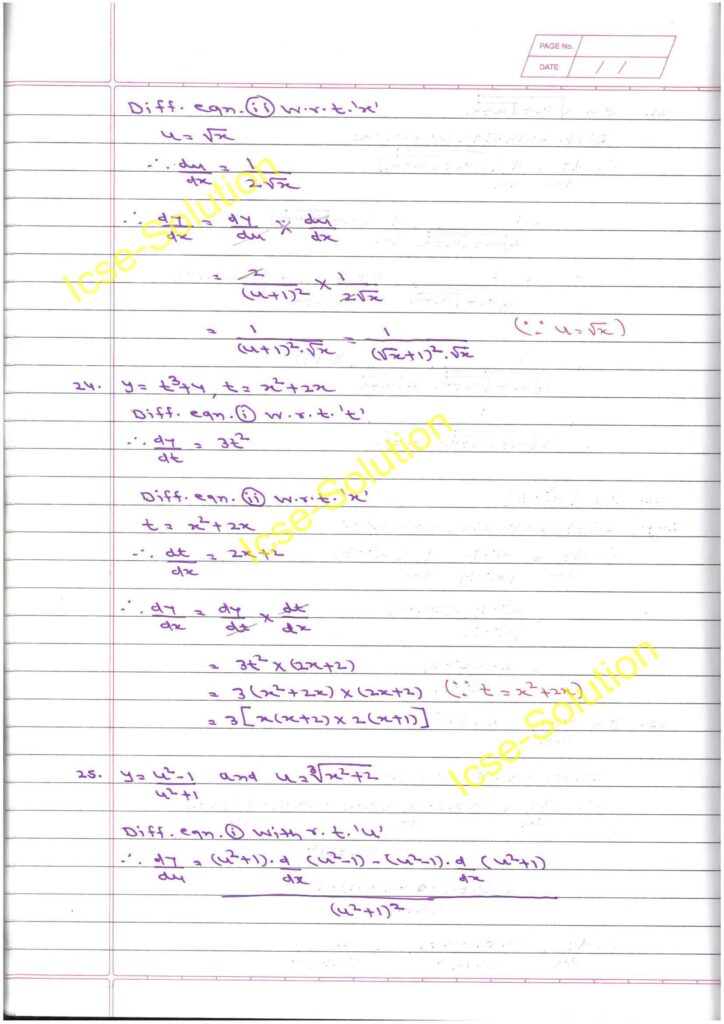 PAGE No.
DATE / /
Diff. eqn. (ii) w.r.t. 'x'
u = √x
∴ du/dx = 1/(2√x)
∴ dy/dx = dy/du × du/dx
= 2/(u+1)² × 1/(2√x)
= 1/((u+1)²·√x) = 1/((√x+1)²·√x) (∵ u = √x)
24. y = t³+4, t = x²+2x
Diff. eqn. (i) w.r.t. 't'
∴ dy/dt = 3t²
Diff. eqn. (ii) w.r.t. 'x'
t = x²+2x
∴ dt/dx = 2x+2
∴ dy/dx = dy/dt × dt/dx
= 3t² × (2x+2)
= 3(x²+2x) × (2x+2) (∵ t = x²+2x)
= 3[x(x+2) × 2(x+1)]
25. y = (u²-1)/(u²+1) and u = ³√(x²+2)
Diff. eqn. (i) with r.t. 'u'
∴ dy/du = ((u²+1)·d/dx (u²-1) - (u²-1)·d/dx (u²+1))/(u²+1)²
Icse-Solution
Icse-Solution
Icse-Solution